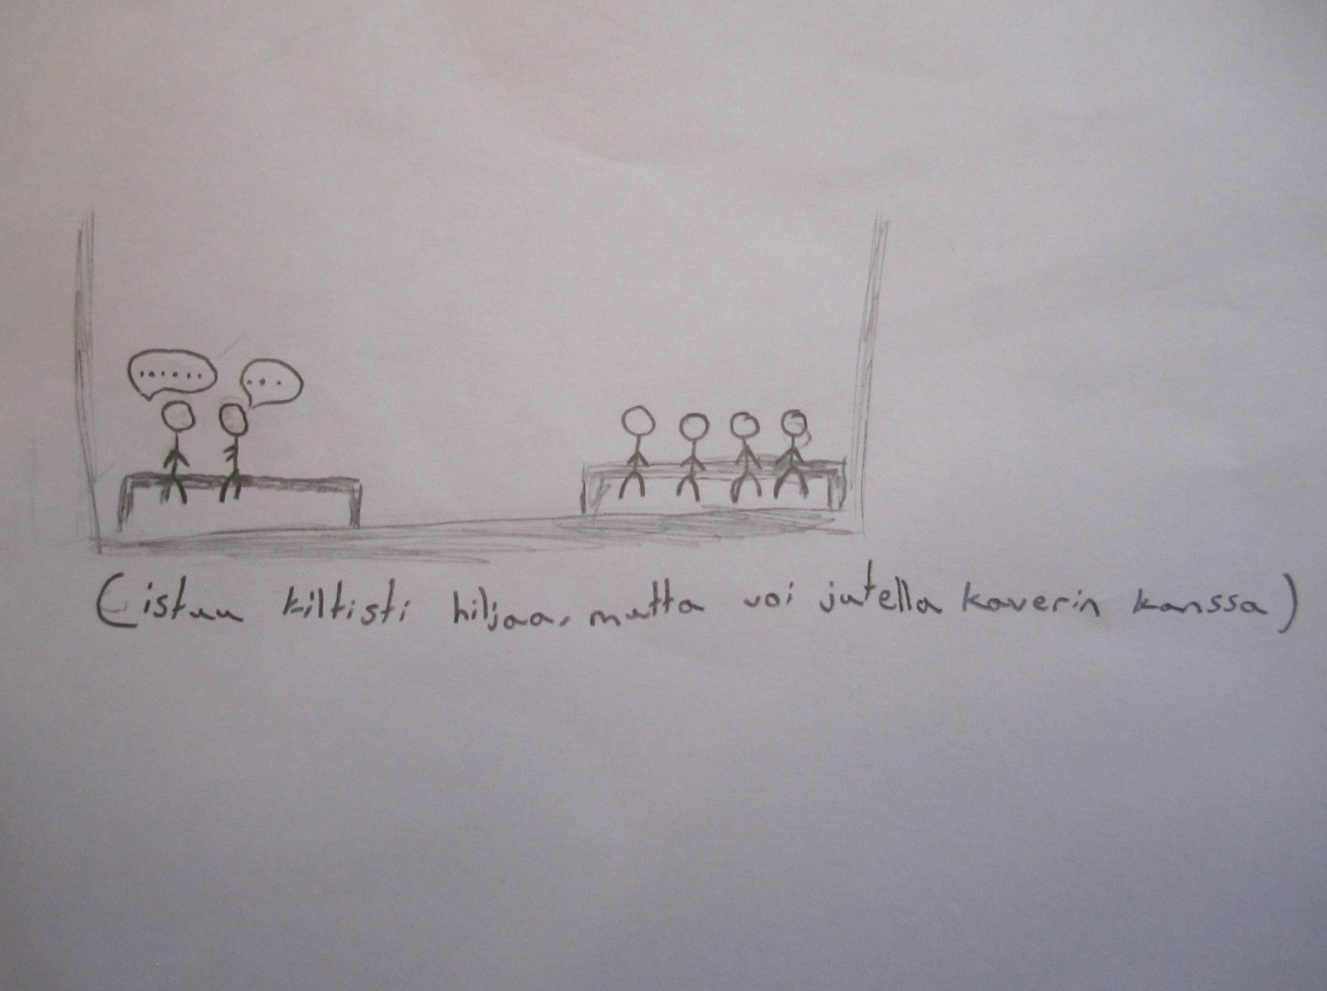 ...... ...
(istuu kiltisti hiljaa, mutta voi jutella kaverin kanssa)